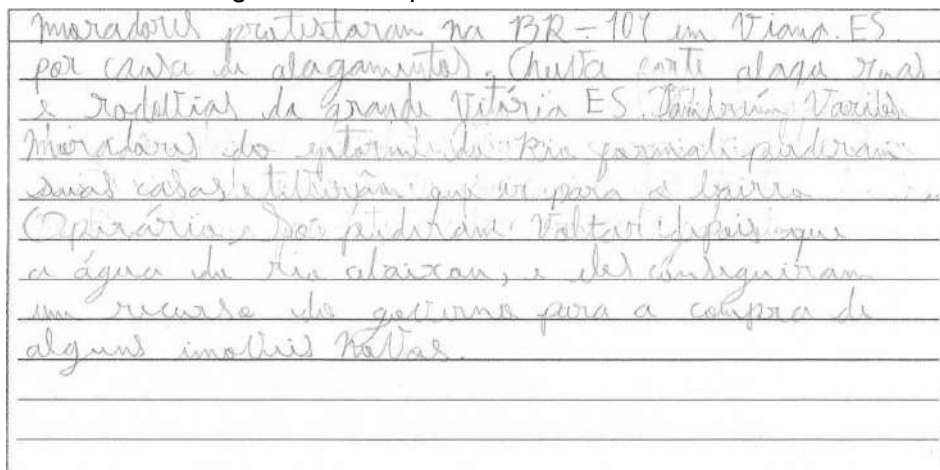 moradores protestaram na BR = 101 em Viana. ES
por causa de alagamentos, Chuva forte alaga ruas
e rodovias da grande Vitória ES. Também Varios
Moradores do entorno do Rio formati perderam
suas casas e tiveram que ir para o bairro
Operário, Só puderam Voltar depois que
a água do rio abaixou, e eles conseguiram
um recurso do governo para a compra de
alguns imoveis novos.